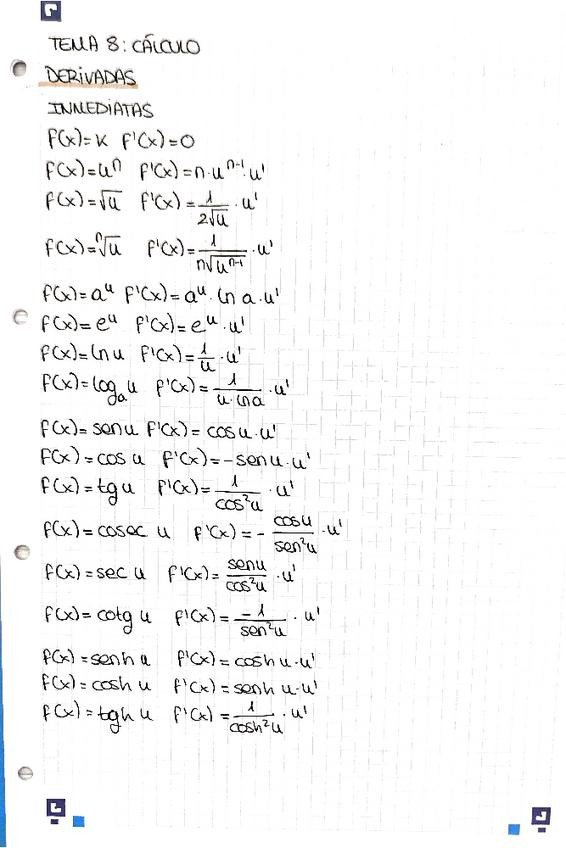 TEMA 8: CÁLCULO
DERIVADAS
INMEDIATAS
f(x)=K f'(x)=0
f(x)=uⁿ f'(x)=n·uⁿ⁻¹·u'
f(x)=√u f'(x)=1/(2√u)·u'
f(x)=ⁿ√u f'(x)=1/(n√uⁿ⁻¹)·u'
f(x)=aᵘ f'(x)=aᵘ·ln a·u'
f(x)=eᵘ f'(x)=eᵘ·u'
f(x)=ln u f'(x)=1/u·u'
f(x)=logₐ u f'(x)=1/(u·ln a)·u'
f(x)=sen u f'(x)=cos u·u'
f(x)=cos u f'(x)=-sen u·u'
f(x)=tg u f'(x)=1/cos²u·u'
f(x)=cosec u f'(x)=-cos u/sen²u·u'
f(x)=sec u f'(x)=sen u/cos²u·u'
f(x)=cotg u f'(x)=-1/sen²u·u'
f(x)=senh u f'(x)=cosh u·u'
f(x)=cosh u f'(x)=senh u·u'
f(x)=tgh u f'(x)=1/cosh²u·u'